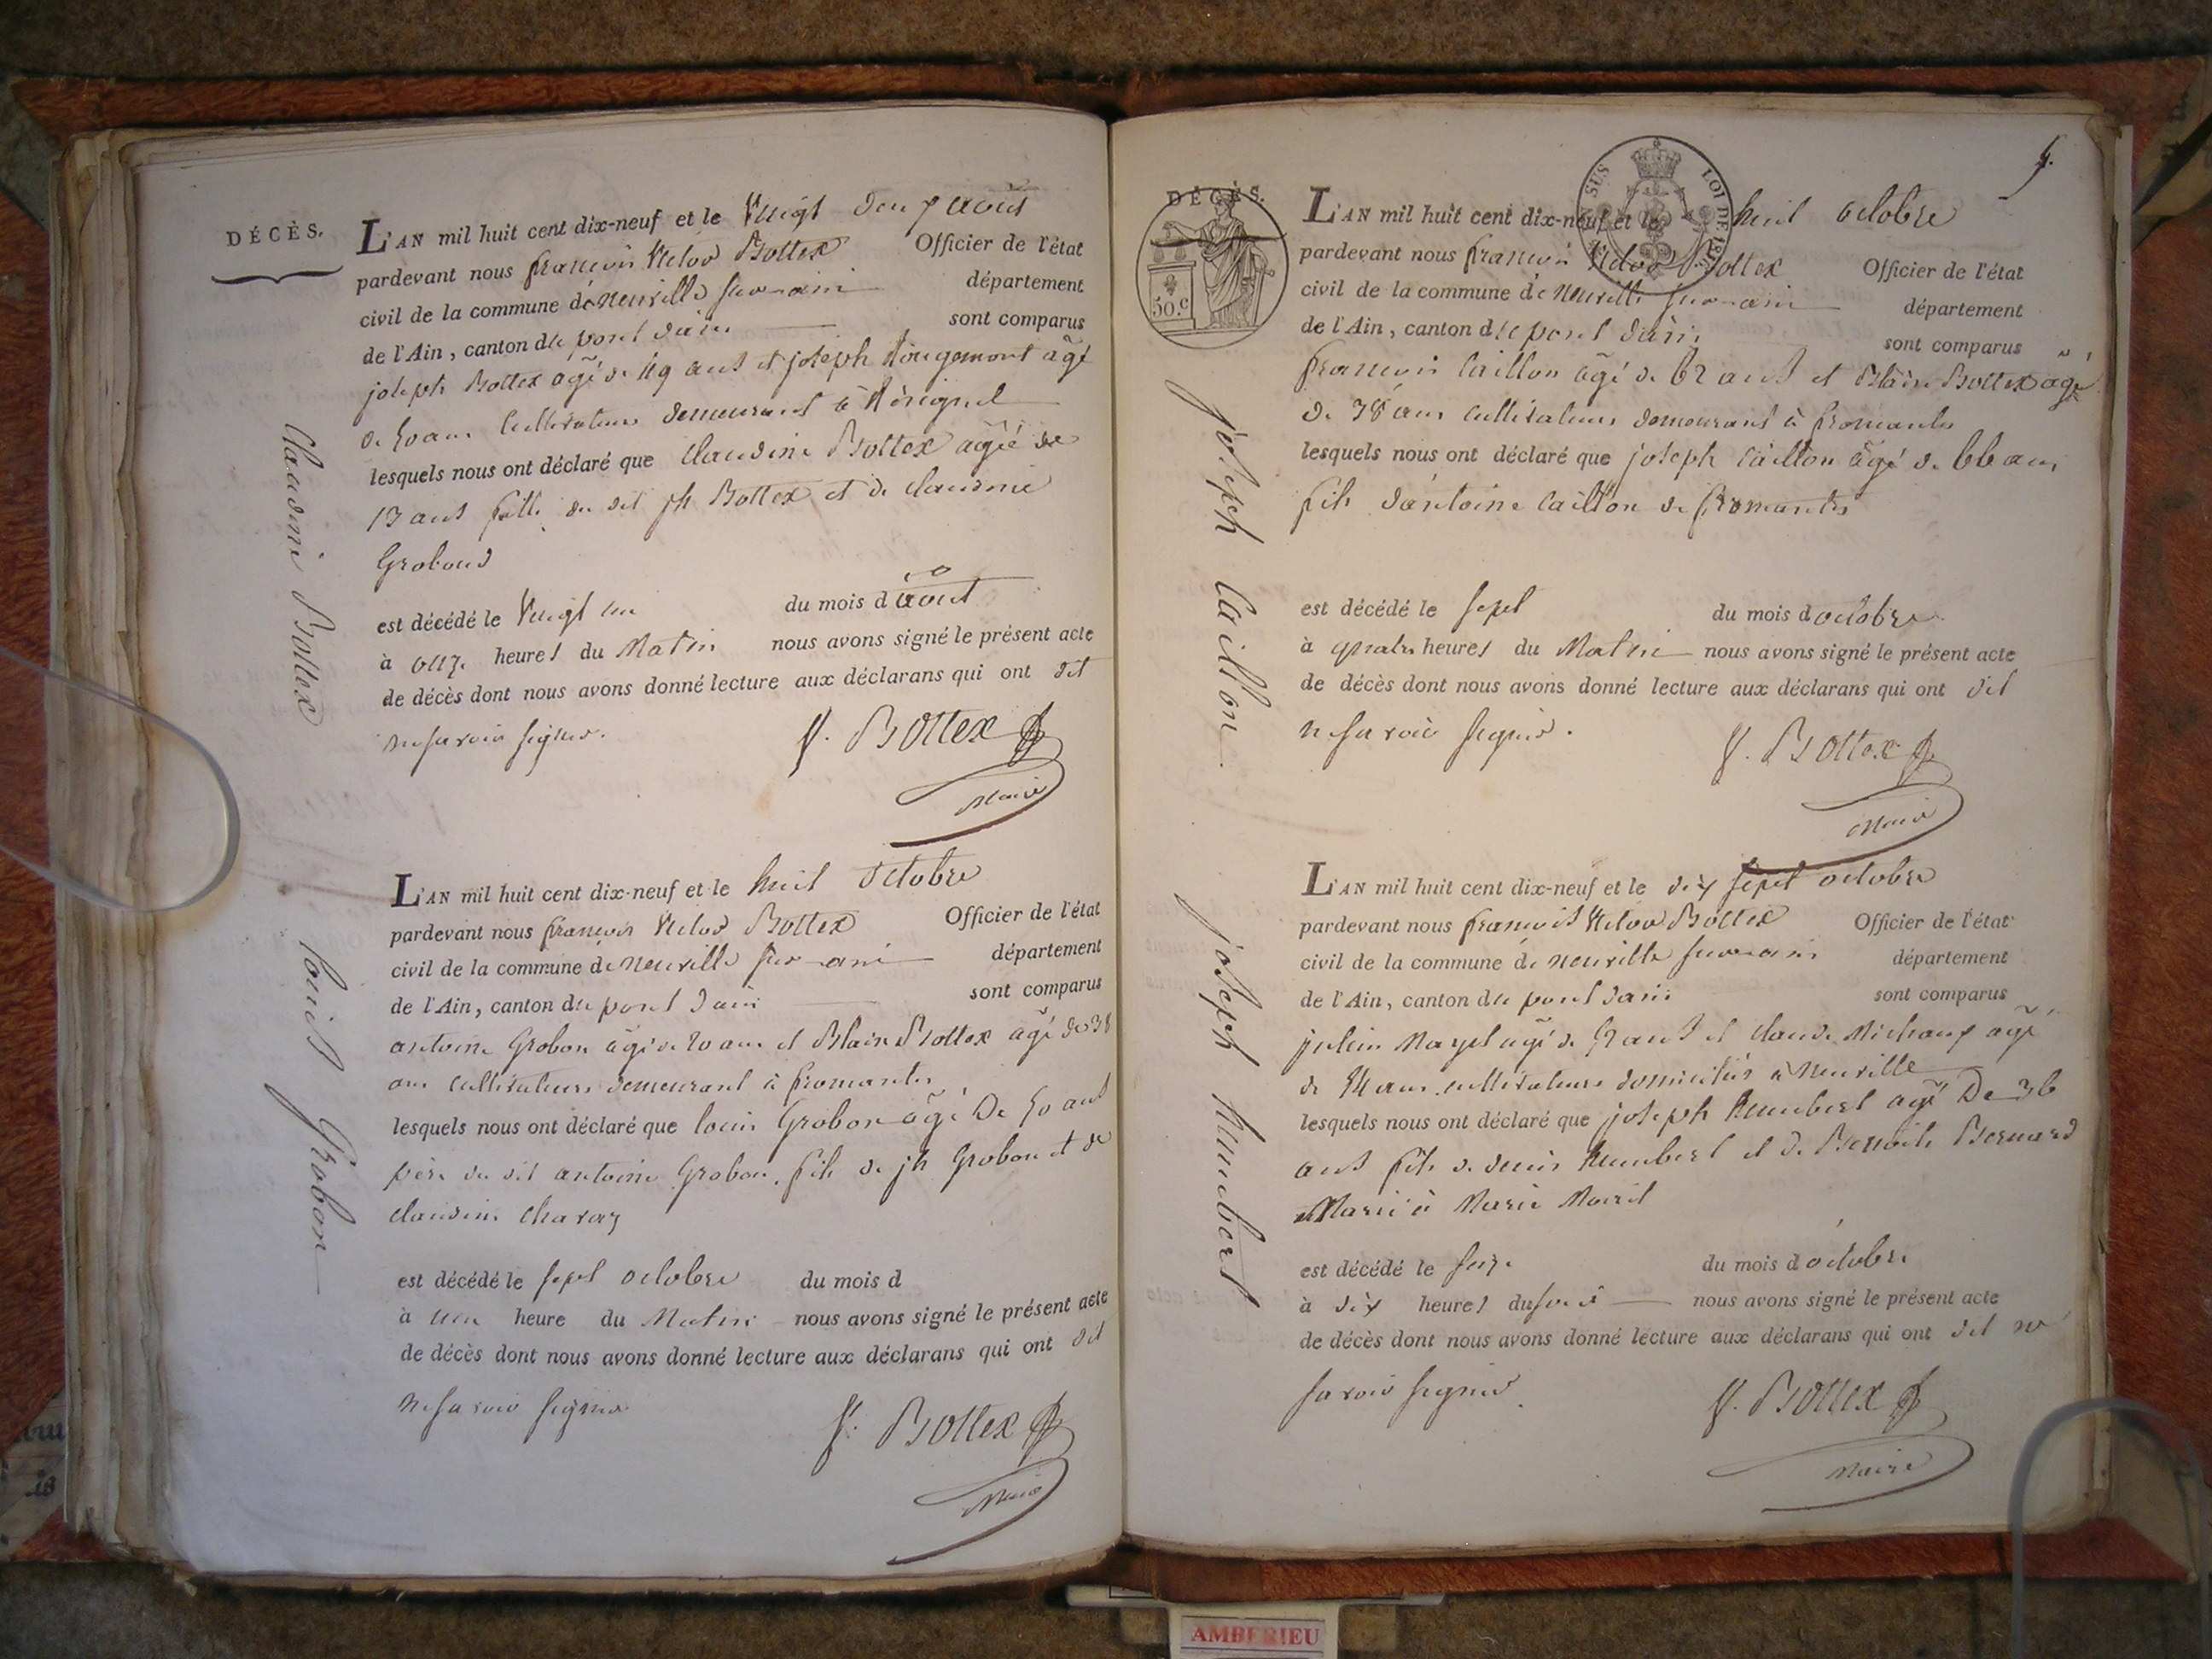 DÉCÈS.
L'AN mil huit cent dix-neuf et le Vingt deux aoút
pardevant nous françois Victor Bottex Officier de l'état
civil de la commune de neuville sur ain département
de l'Ain, canton du pont dain sont comparus
joseph Bottex agé de 49 ans et joseph Rougemont agé
de 50 ans Cultivateurs demeurant à
lesquels nous ont déclaré que Claudine Bottex agée de
13 ans fille du dit jh Bottex et de claudine
Groboud
est décédé le Vingt un du mois d aout
à onze heures du Matin nous avons signé le présent acte
de décès dont nous avons donné lecture aux déclarans qui ont dit
ne savoir signer.
V. Bottex
Maire
Claudine Bottex
L'AN mil huit cent dix-neuf et le huit octobre
pardevant nous françois Victor Bottex Officier de l'état
civil de la commune de neuville sur ain département
de l'Ain, canton du pont dain sont comparus
antoine Grobon agé de 20 ans et Blaise Bottex agé de 38
ans cultivateurs demeurant à fromantes
lesquels nous ont déclaré que louis Grobon agé De 50 ans
père du dit antoine Grobon, fils de jh Grobon et de
claudine Charvey
est décédé le sept octobre du mois d
à une heure du Matin nous avons signé le présent acte
de décès dont nous avons donné lecture aux déclarans qui ont dit
ne savoir signer
V. Bottex
Maire
louis Grobon
4.
DÉCÈS.
50.c
SUS LOI DE 181
L'AN mil huit cent dix-neuf et le huit octobre
pardevant nous françois Victor Bottex Officier de l'état
civil de la commune de neuville sur ain département
de l'Ain, canton du pont dain sont comparus
françois Caillon agé de 62 ans et Blaise Bottex agé
de 38 ans cultivateurs demeurant à fromantes
lesquels nous ont déclaré que joseph Caillon agé de 66 ans
fils d'antoine Caillon de fromantes
est décédé le sept du mois d octobre
à quatre heures du Matin nous avons signé le présent acte
de décès dont nous avons donné lecture aux déclarans qui ont dit
ne savoir signer.
V. Bottex
Maire
joseph Caillon
L'AN mil huit cent dix-neuf et le dix sept octobre
pardevant nous françois Victor Bottex Officier de l'état
civil de la commune de neuville sur ain département
de l'Ain, canton du pont dain sont comparus
julien agé de ans et claude Michaux agé
de ans cultivateurs domiciliés à neuville
lesquels nous ont déclaré que joseph humbert agé De 36
ans fils de denis humbert et de Benoite Bernard
Marié à Marie
est décédé le seize du mois d octobre
à dix heures du soir nous avons signé le présent acte
de décès dont nous avons donné lecture aux déclarans qui ont dit ne
savoir signer.
V. Bottex
Maire
joseph humbert
AMBERIEU